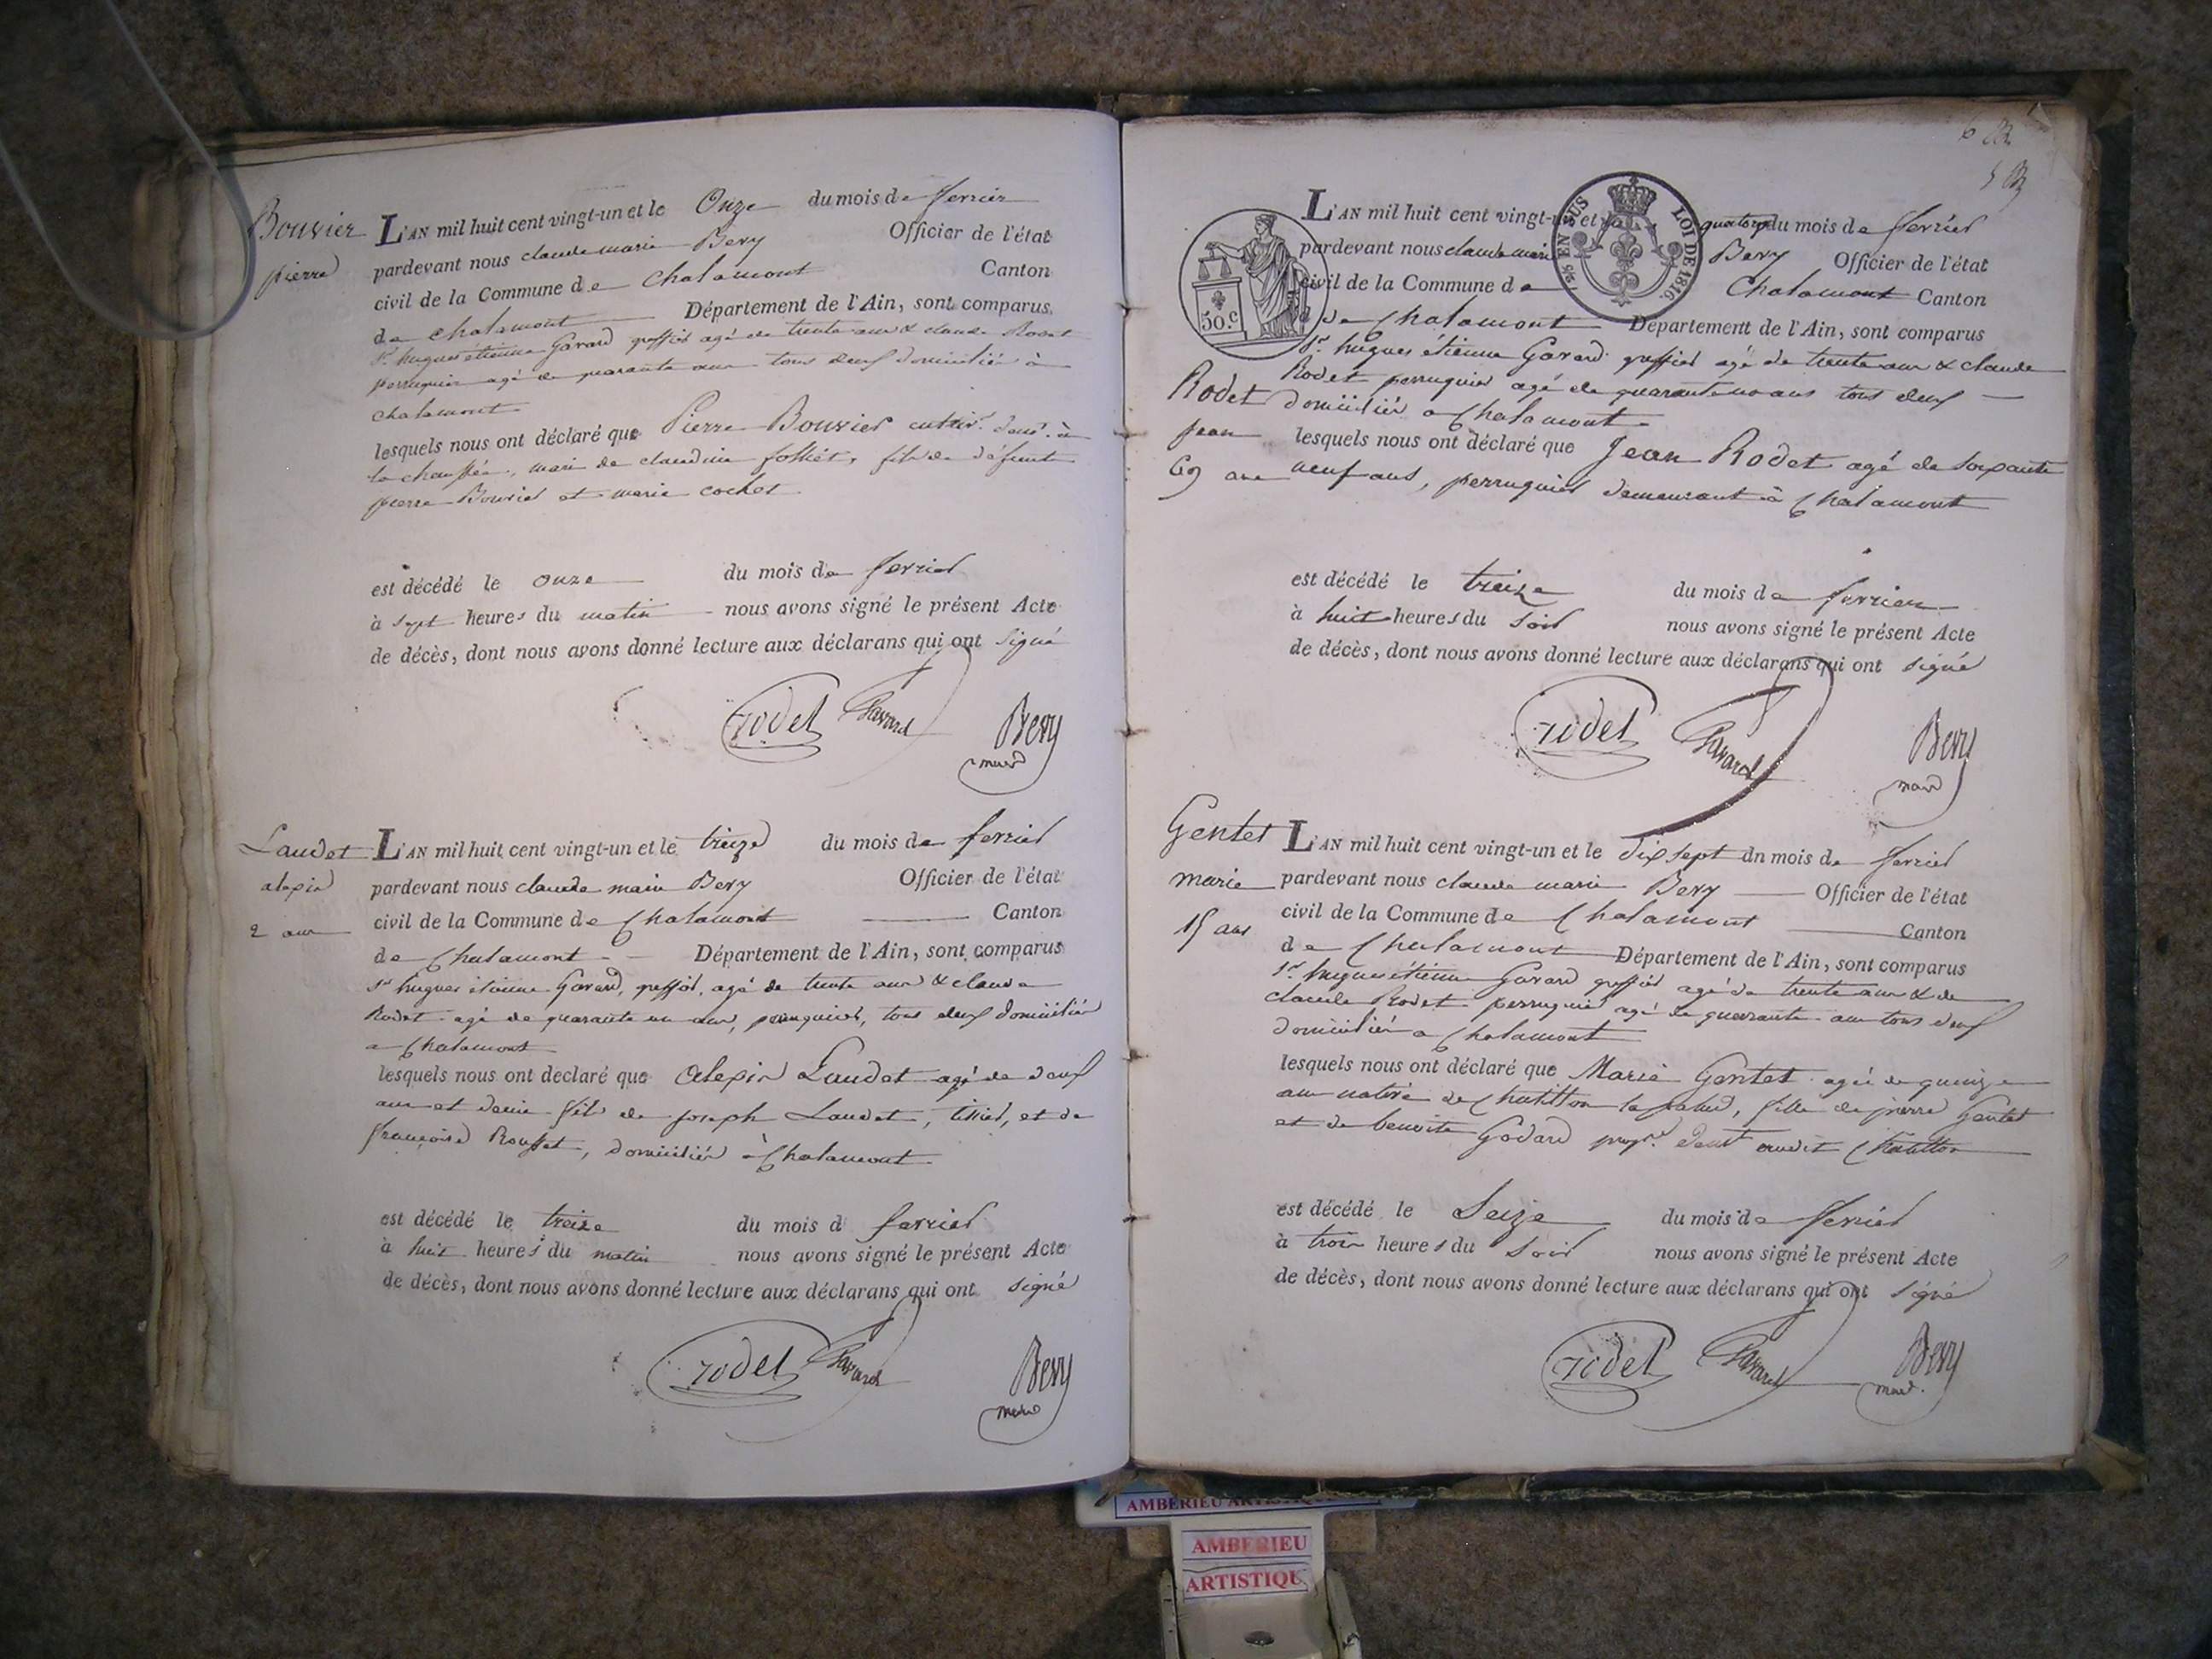 Bouvier
pierre
L'AN mil huit cent vingt-un et le Onze du mois de fevrier
pardevant nous claude marie Bevy Officier de l'état
civil de la Commune de Chalamont Canton
de Chalamont Département de l'Ain, sont comparus
Sr. hugues étienne Gavard greffier agé de trente ans & claude Rodet
perruquier agé de quarante ans tous deux domiciliés à
chalamont
lesquels nous ont déclaré que Pierre Bouvier cultivr. à
la chaussée, mari de claudine folliet, fils de défunt
pierre Bouvier et marie cochet
est décédé le onze du mois de fevrier
à sept heures du matin nous avons signé le présent Acte
de décès, dont nous avons donné lecture aux déclarans qui ont signé
rodet Gavard Bevy
maire
Laudet
alexis
2 ans
L'AN mil huit cent vingt-un et le treize du mois de fevrier
pardevant nous claude marie Bevy Officier de l'état
civil de la Commune de Chalamont Canton
de Chalamont Département de l'Ain, sont comparus
Sr hugues étienne Gavard, greffier, agé de trente ans & claude
Rodet agé de quarante un ans, perruquier, tous deux domiciliés
a Chalamont
lesquels nous ont declaré que Alexis Laudet agé de deux
ans et demi fils de joseph Laudet, tissier, et de
françoise Rousset, domiciliés à Chalamont
est décédé le treize du mois d fevrier
à huit heures du matin nous avons signé le présent Acte
de décès, dont nous avons donné lecture aux déclarans qui ont signé
rodet Gavard Bevy
maire
6
5
EN SUS
LOI DE 1816.
50.c
L'AN mil huit cent vingt-un et le quatorze du mois de fevrier
pardevant nous claude marie Bevy Officier de l'état
civil de la Commune de Chalamont Canton
de Chalamont Département de l'Ain, sont comparus
Sr. hugues étienne Gavard greffier agé de trente ans & claude
Rodet perruquier agé de quarante un ans tous deux
domiciliés a Chalamont
Rodet
jean
69 ans
lesquels nous ont déclaré que Jean Rodet agé de soixante
neuf ans, perruquier demeurant à Chalamont
est décédé le treize du mois de fevrier
à huit heures du soir nous avons signé le présent Acte
de décès, dont nous avons donné lecture aux déclarans qui ont signé
rodet Gavard Bevy
maire
Gentet
marie
15 ans
L'AN mil huit cent vingt-un et le dix sept du mois de fevrier
pardevant nous claude marie Bevy Officier de l'état
civil de la Commune de Chalamont Canton
de Chalamont Département de l'Ain, sont comparus
Sr. hugues étienne Gavard greffier agé de trente ans & de
claude Rodet perruquier agé de quarante ans tous deux
domiciliés a Chalamont
lesquels nous ont déclaré que Marie Gentet agée de quinze
ans native de Chatillon la palud, fille de pierre Gentet
et de benoite Godard propr. demt audit Chatillon
est décédé le Seize du mois de fevrier
à trois heures du soir nous avons signé le présent Acte
de décès, dont nous avons donné lecture aux déclarans qui ont signé
rodet Gavard Bevy
maire
AMBERIEU ARTISTIQUE
AMBERIEU
ARTISTIQU